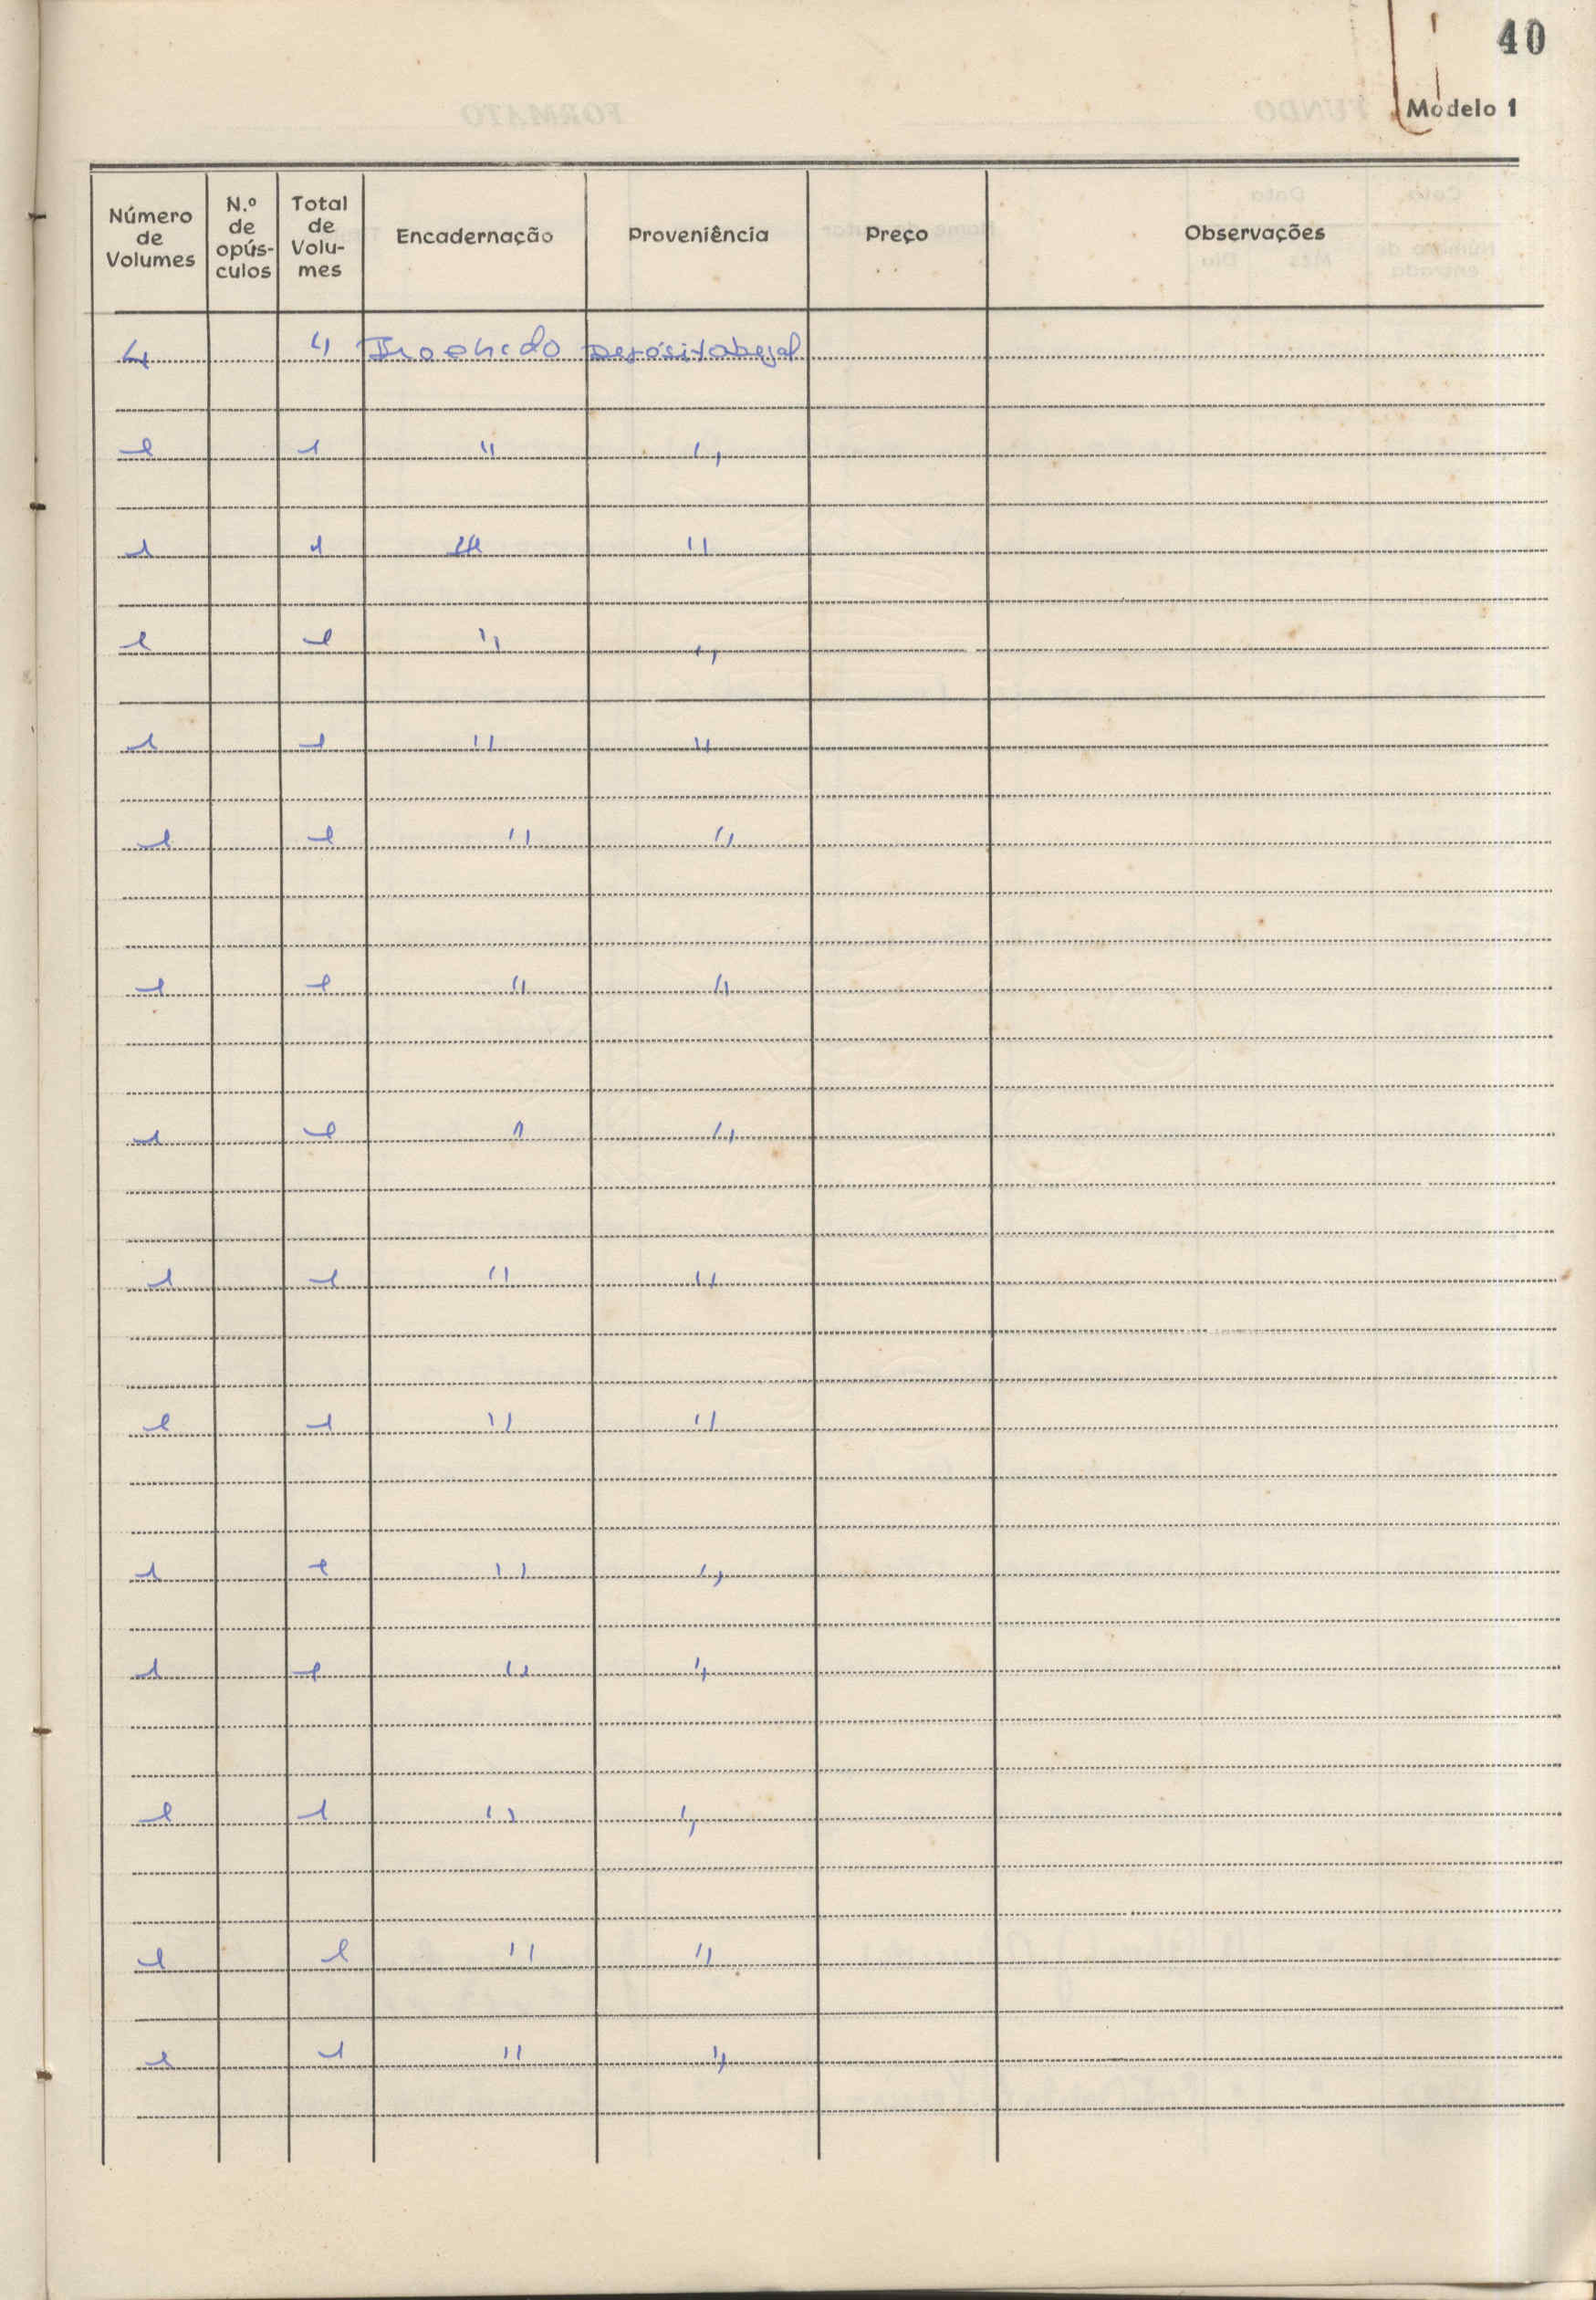 40
Modelo 1
Número de Volumes | N.º de opús-culos | Total de Volu-mes | Encadernação | Proveniência | Preço | Observações
4 | 4 | Brochado | Depósito legal
1 | 1 | " | "
1 | 1 | " | "
1 | 1 | " | "
1 | 1 | " | "
1 | 1 | " | "
1 | 1 | " | "
1 | 1 | " | "
1 | 1 | " | "
1 | 1 | " | "
1 | 1 | " | "
1 | 1 | " | "
1 | 1 | " | "
1 | 1 | " | "
1 | 1 | " | "